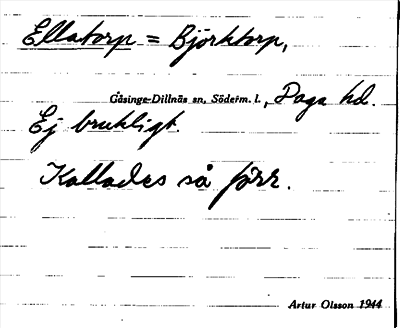 Ellatorp = Björktorp,
Gåsinge-Dillnäs sn, Söderm. l., Daga hd.
Ej brukligt.
Kallades så förr.
Artur Olsson 1944